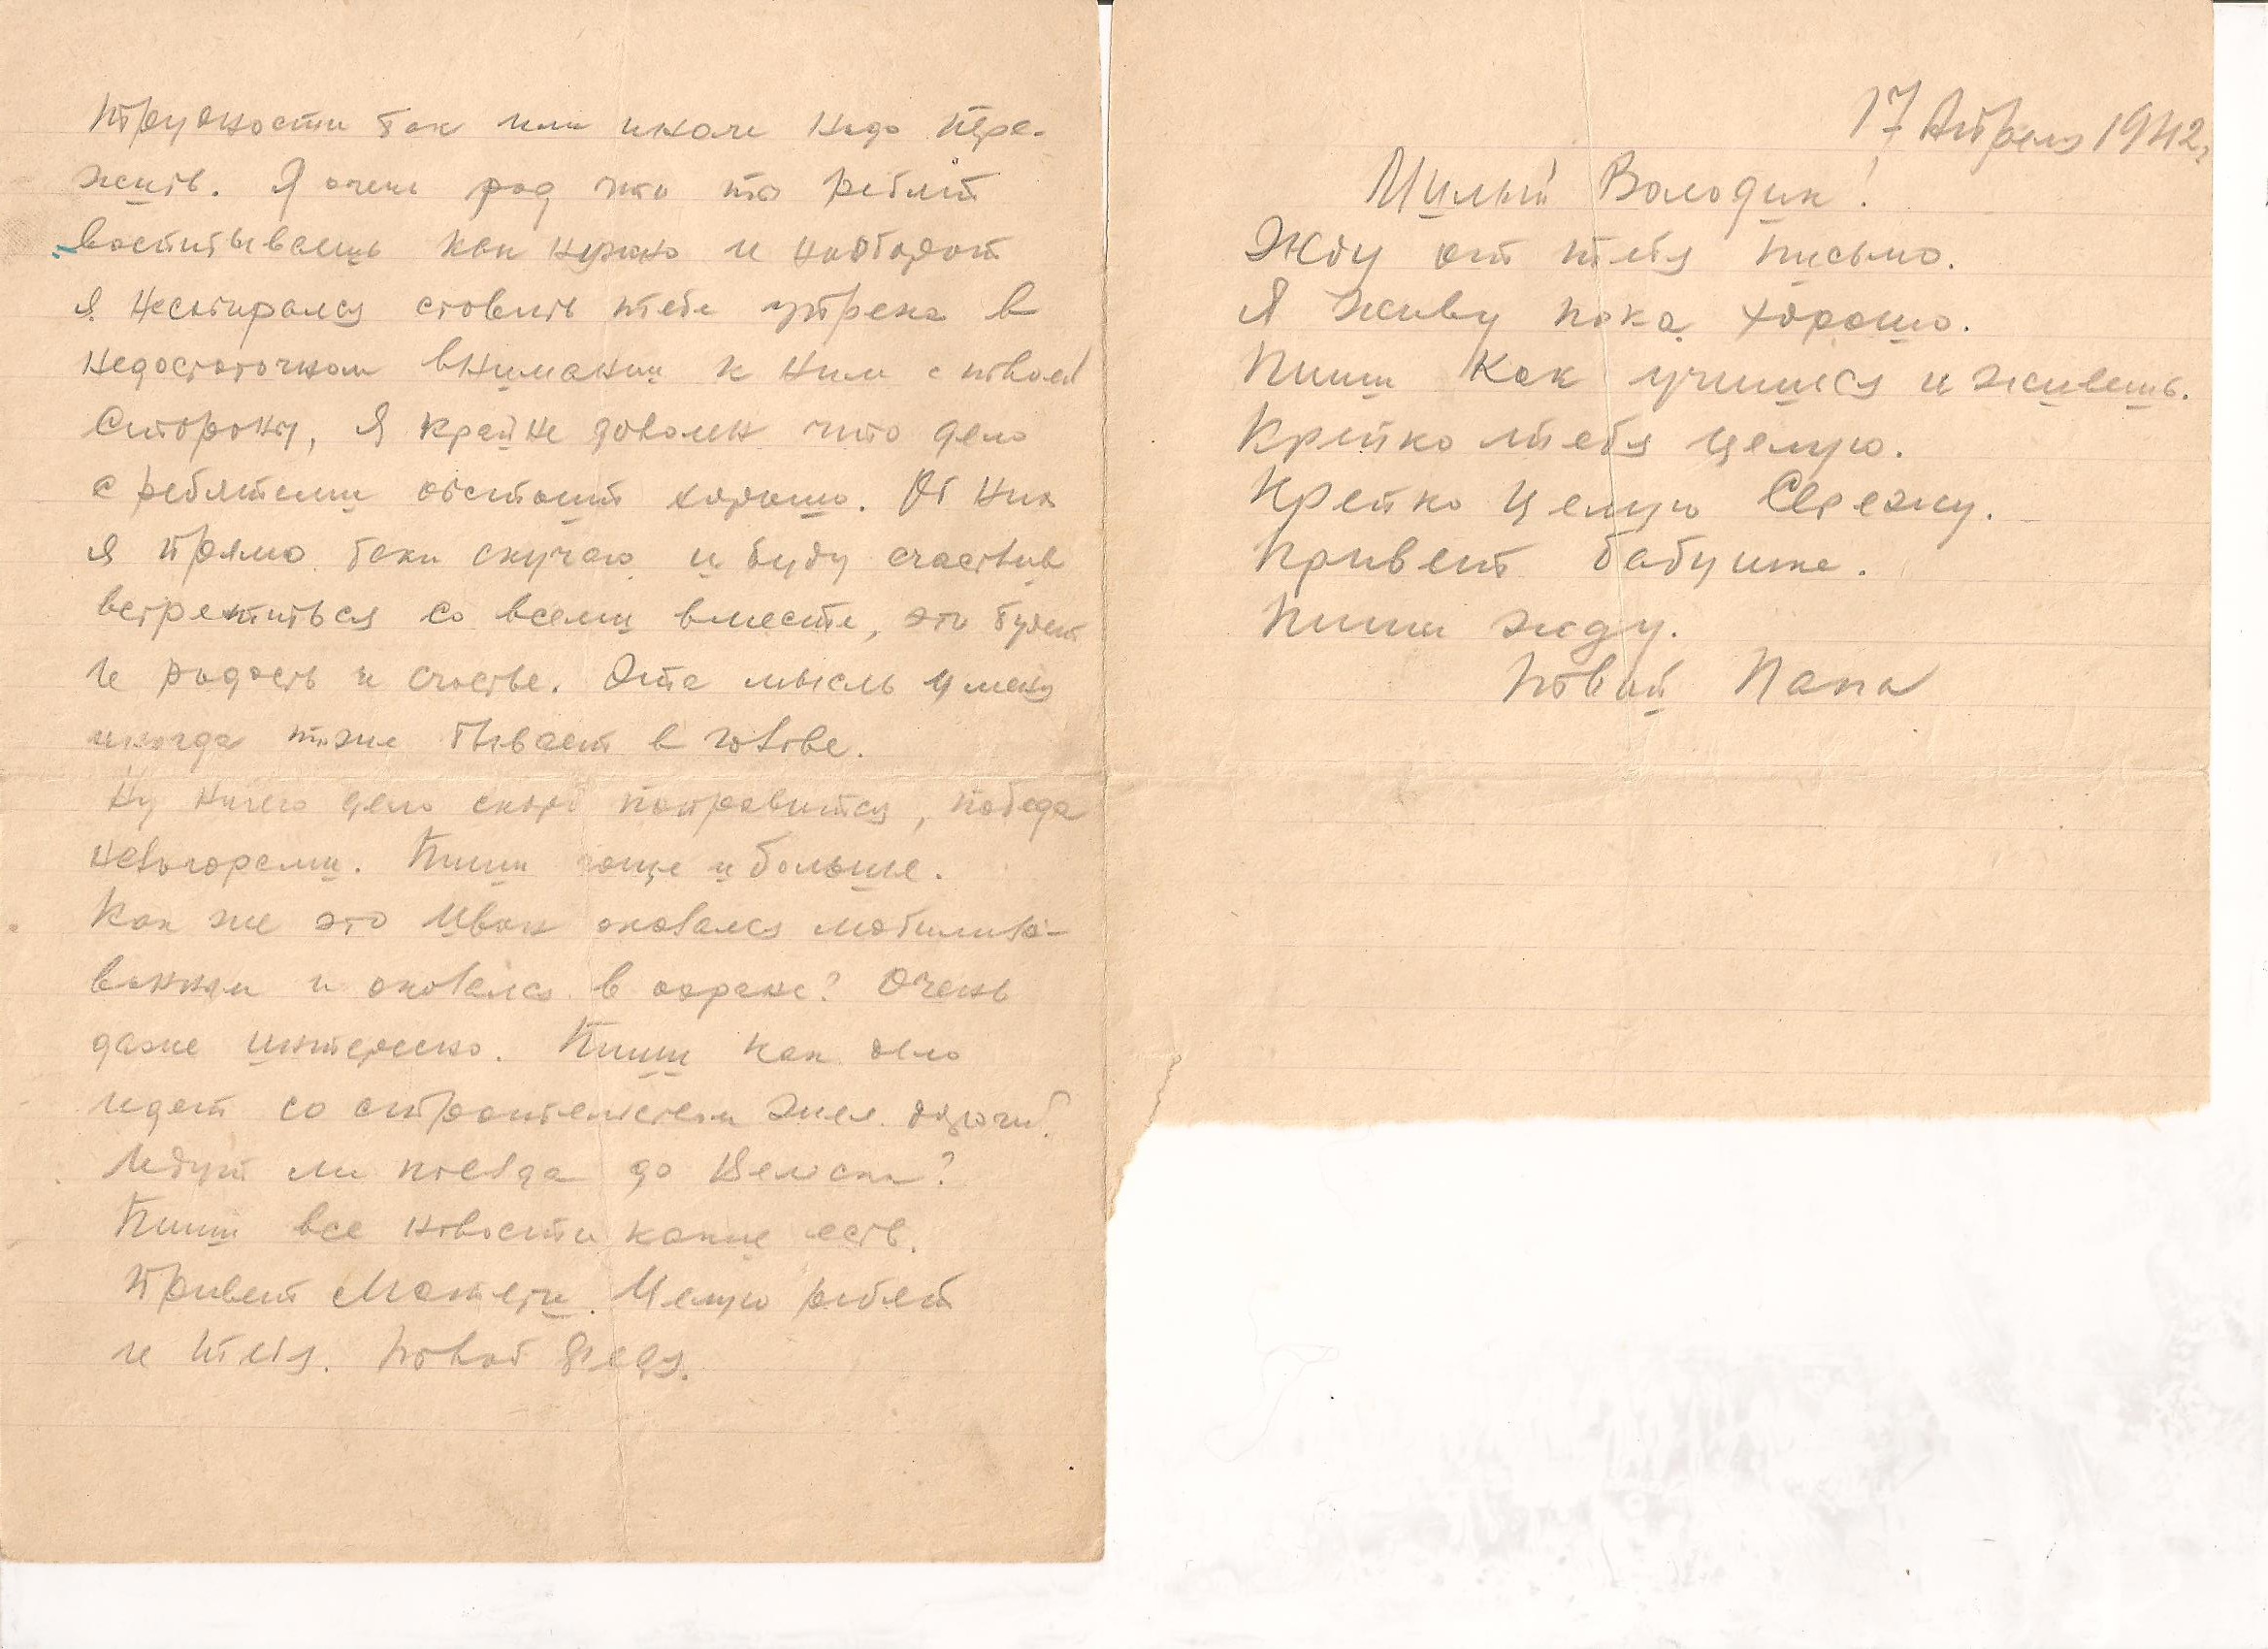 трудности так или иначе надо пере-
жить. Я очень рад что ты ребят
воспитываешь как нужно и наоборот
я несобирался ставить тебе упрека в
недостаточном внимании к ним с твоей
стороны, я крайне доволен что дело
с ребятами обстоит хорошо. Об них
я прямо таки скучаю и буду счастлив
встретиться со всеми вместе, это будет
и радость и счастье. Эта мысль у меня
иногда тоже бывает в голове.
Ну ничего дело скоро поправится, победа
незагорами. Пиши чаще и больше.
Как же это Иван оказался мобилизо-
ванным и оказался в охране? Очень
даже интересно. Пиши как дело
идет со строительством жел. дороги?
Идут ли поезда до Вельска?
Пиши все новости какие есть.
Привет Матери. Целую ребят
и тебя. твой Федя.
17 Апреля 1942г
Милый Володик!
Жду от тебя письмо.
Я живу пока хорошо.
Пиши как учишься и живешь.
Крепко тебя целую.
Крепко целую Сережу.
Привет бабушке.
Пиши жду.
твой Папа